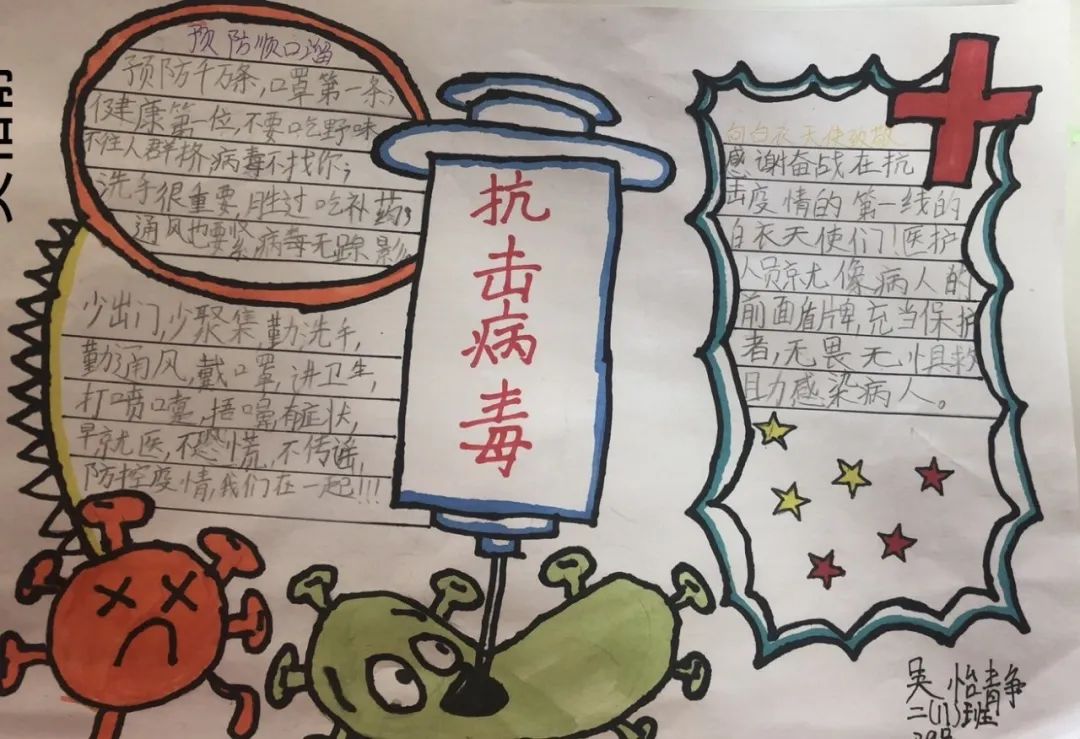 预防顺口溜
预防千万条,口罩第一条;
健康第一位,不要吃野味
不往人群挤病毒不找你;
洗手很重要,胜过吃补药;
通风也要紧病毒无踪影
少出门,少聚集,勤洗手,
勤通风,戴口罩,讲卫生,
打喷嚏,捂嘴,有症状,
早就医,不恐慌,不传谣,
防控疫情,我们在一起!!!
抗
击
病
毒
向白衣天使致敬
感谢奋战在抗
击疫情的第一线的
白衣天使们!医护
人员就像病人的
前面盾牌,充当保护
者,无畏无惧救
助感染病人。
吴怡静
二(1)班